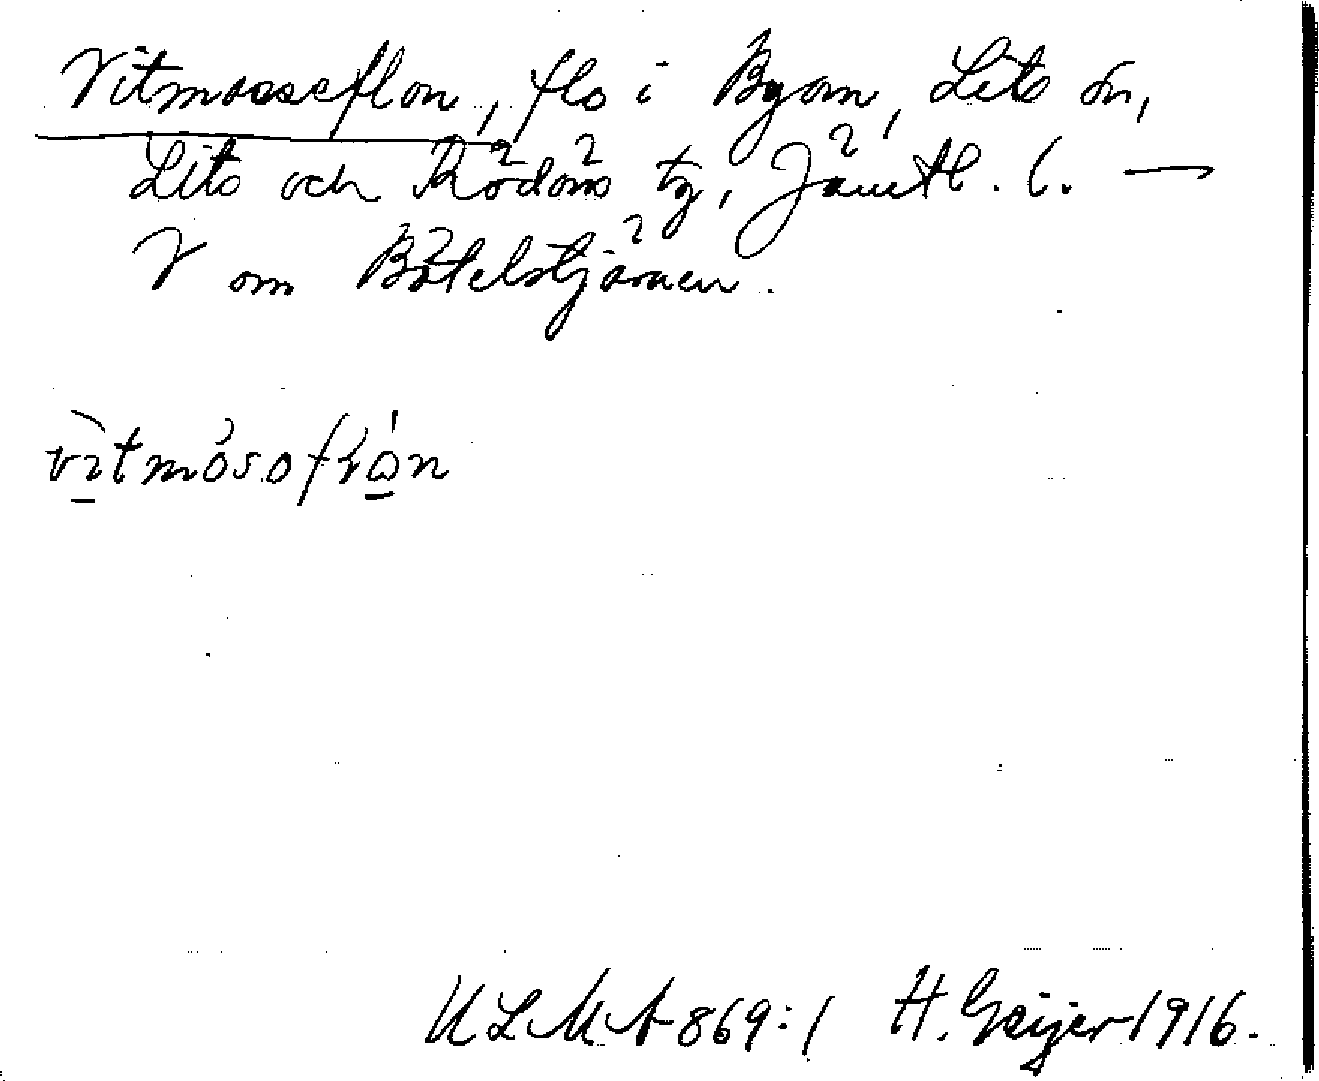 Vitmosseflon, flo i Byom, Lits sn,
Lits och Rödöns tg, Jämtl. l. —
V om Båtelstjärnen.
vìtmósoflo̱n
ULMA 869:1 H. Geijer 1916.